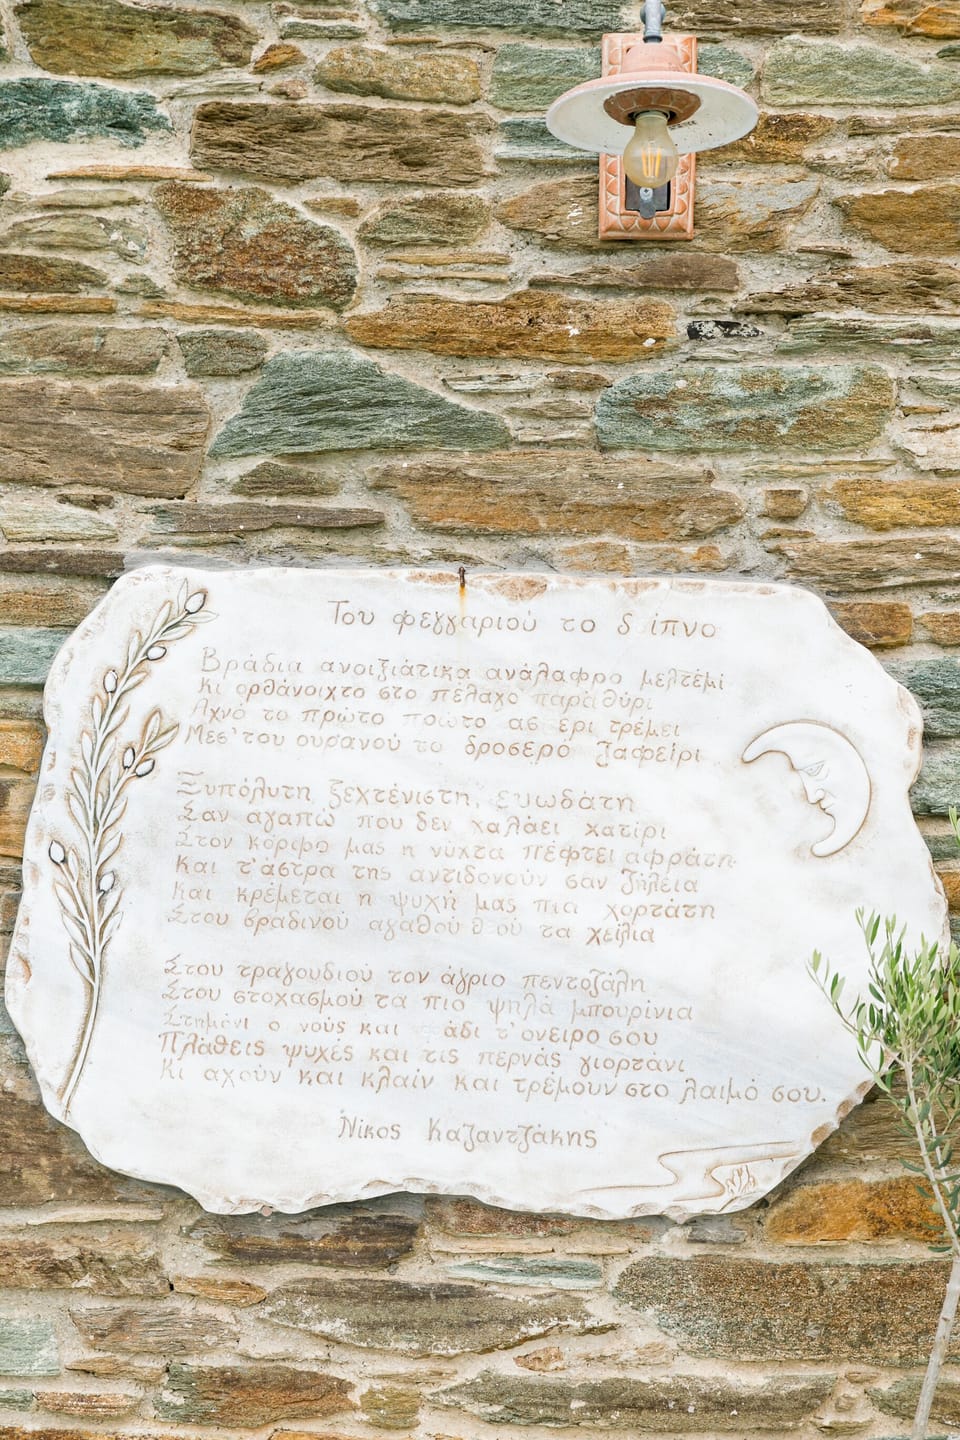 Του φεγγαριού το δείπνο
Βράδια ανοιξιάτικα ανάλαφρο μελτέμι
Κι ορθάνοιχτο στο πέλαγο παραθύρι
Αχνό το πρώτο πρώτο αστέρι τρέμει
Μεσ' του ουρανού το δροσερό ζαφείρι
Ξυπόλυτη ξεχτένιστη, ευωδάτη
Σαν αγαπώ που δεν χαλάει χατίρι
Στον κόρφο μας η νύχτα πέφτει αφράτη
Και τ' άστρα της αντιδονούν σαν ζήλεια
Και κρέμεται η ψυχή μας πια χορτάτη
Στου βραδινού αγαθού θεού τα χείλια
Στου τραγουδιού τον άγριο πεντοζάλη
Στου στοχασμού τα πιο ψηλά μπουρίνια
Στημόνι ο νους και άδι τ' ονειρο σου
Πλάθεις ψυχές και τις περνάς γιορτάνι
Κι αχούν και κλαίν και τρέμουν στο λαιμό σου.
Νίκος Καζαντζάκης